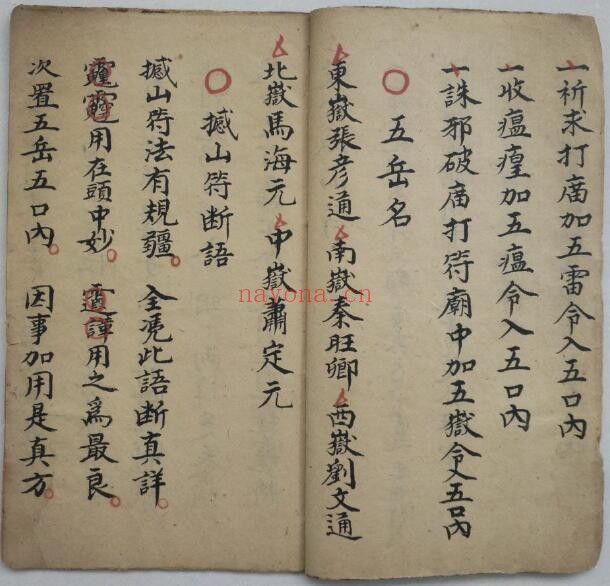 一祈求打庙加五雷令入五口內
一收瘟瘽加五瘟令入五口內
一誅邪破庙打符廟中加五嶽令入五口內
五岳名
東嶽張彥通 南嶽秦旺卿 西嶽劉文通
北嶽馬海元 中嶽蕭定元
撼山符断語
撼山符法有規疆 全凴此語断真詳
用在頭中妙 用之為最良
次置五岳五口內 因事加用是真方
nayona.cn